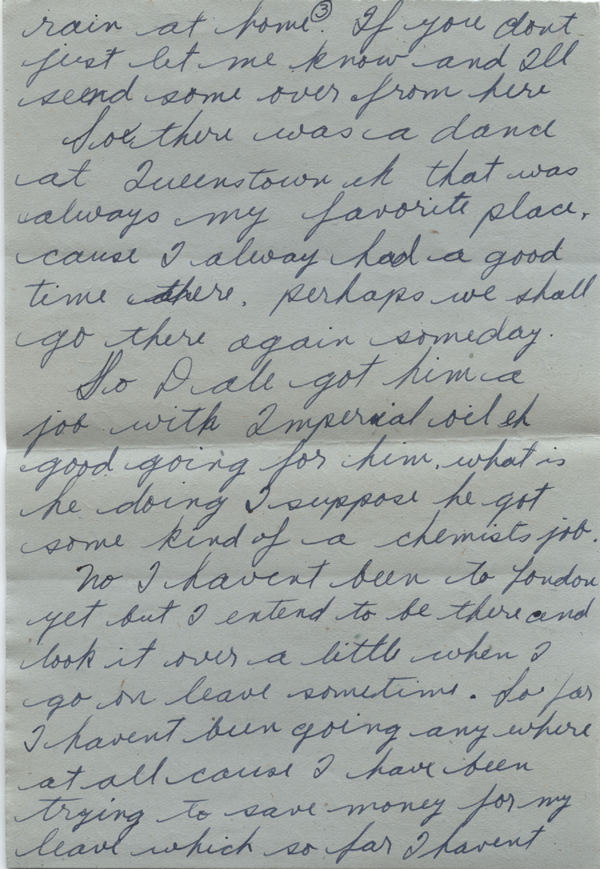 ③
rain at home. If you dont
just let me know and Ill
seend some over from here
So there was a dance
at Queenstown eh that was
always my favorite place,
cause I alway had a good
time there. perhaps we shall
go there again someday.
So Dale got him a
job with Imperial oil eh
good going for him. what is
he doing I suppose he got
some kind of a chemists job.
No I havent been to London
yet but I entend to be there and
look it over a little when I
go on leave sometime. So far
I havent been going any where
at all cause I have been
trying to save money for my
leave which so far I havent